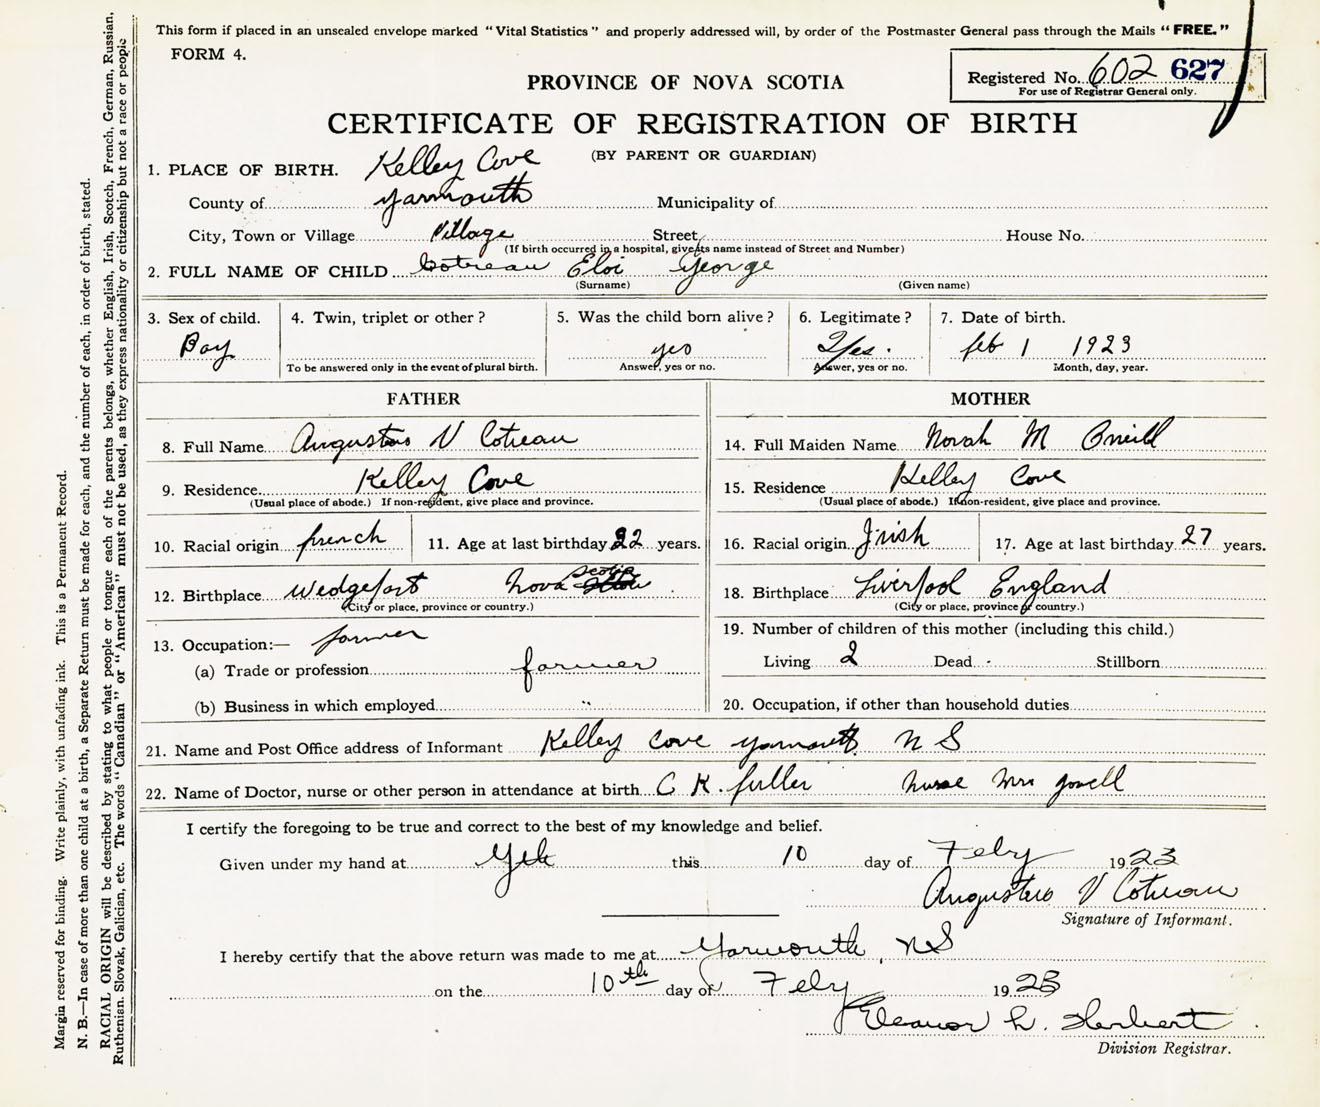 This form if placed in an unsealed envelope marked "Vital Statistics" and properly addressed will, by order of the Postmaster General pass through the Mails "FREE."
FORM 4.
Registered No. 602 627
For use of Registrar General only.
PROVINCE OF NOVA SCOTIA
CERTIFICATE OF REGISTRATION OF BIRTH
(BY PARENT OR GUARDIAN)
1. PLACE OF BIRTH. Kelley Cove
County of Yarmouth Municipality of
City, Town or Village Village Street House No.
(If birth occurred in a hospital, give its name instead of Street and Number)
2. FULL NAME OF CHILD Cotreau Eloi George
(Surname) (Given name)
3. Sex of child. 4. Twin, triplet or other? 5. Was the child born alive? 6. Legitimate? 7. Date of birth.
Boy yes Yes. feb 1 1923
To be answered only in the event of plural birth. Answer, yes or no. Answer, yes or no. Month, day, year.
FATHER
8. Full Name Augustus V Cotreau
9. Residence Kelley Cove
(Usual place of abode.) If non-resident, give place and province.
10. Racial origin french 11. Age at last birthday 22 years.
12. Birthplace Wedgefort Nova Scotia
(City or place, province or country.)
13. Occupation:— farmer
(a) Trade or profession farmer
(b) Business in which employed
MOTHER
14. Full Maiden Name Norah M Oneill
15. Residence Kelley Cove
(Usual place of abode.) If non-resident, give place and province.
16. Racial origin Irish 17. Age at last birthday 27 years.
18. Birthplace Liverpool England
(City or place, province or country.)
19. Number of children of this mother (including this child.)
Living 2 Dead - Stillborn
20. Occupation, if other than household duties
21. Name and Post Office address of Informant Kelley Cove Yarmouth N S
22. Name of Doctor, nurse or other person in attendance at birth C K. fuller nurse Mrs Jowell
I certify the foregoing to be true and correct to the best of my knowledge and belief.
Given under my hand at this 10 day of Feby 1923
Augustus V Cotreau
Signature of Informant.
I hereby certify that the above return was made to me at Yarmouth, NS
on the 10th day of Feby 1923
Eleanor L. Herbert
Division Registrar.
Margin reserved for binding. Write plainly, with unfading ink. This is a Permanent Record.
N. B.—In case of more than one child at a birth, a Separate Return must be made for each, and the number of each, in order of birth, stated.
RACIAL ORIGIN will be described by stating to what people or tongue each of the parents belongs, whether English, Irish, Scotch, French, German, Russian,
Ruthenian, Slovak, Galician, etc. The words "Canadian" or "American" must not be used, as they express nationality or citizenship but not a race or people